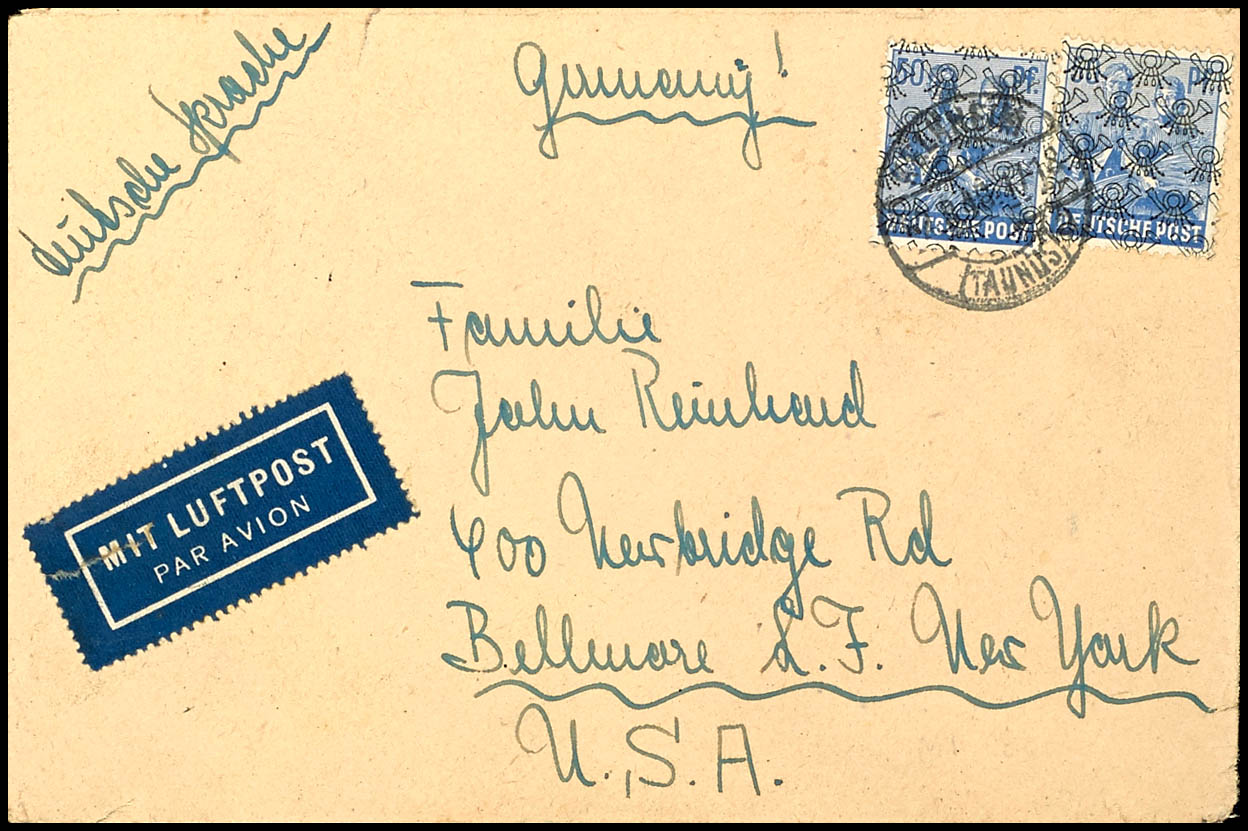 deutsche Sprache
Germany!
50 Pf.
DEUTSCHE POST
Pf
DEUTSCHE POST
(TAUNUS)
Familie
John Reinhard
400 Newbridge Rd
Bellmore L.I. New York
U.S.A.
MIT LUFTPOST
PAR AVION